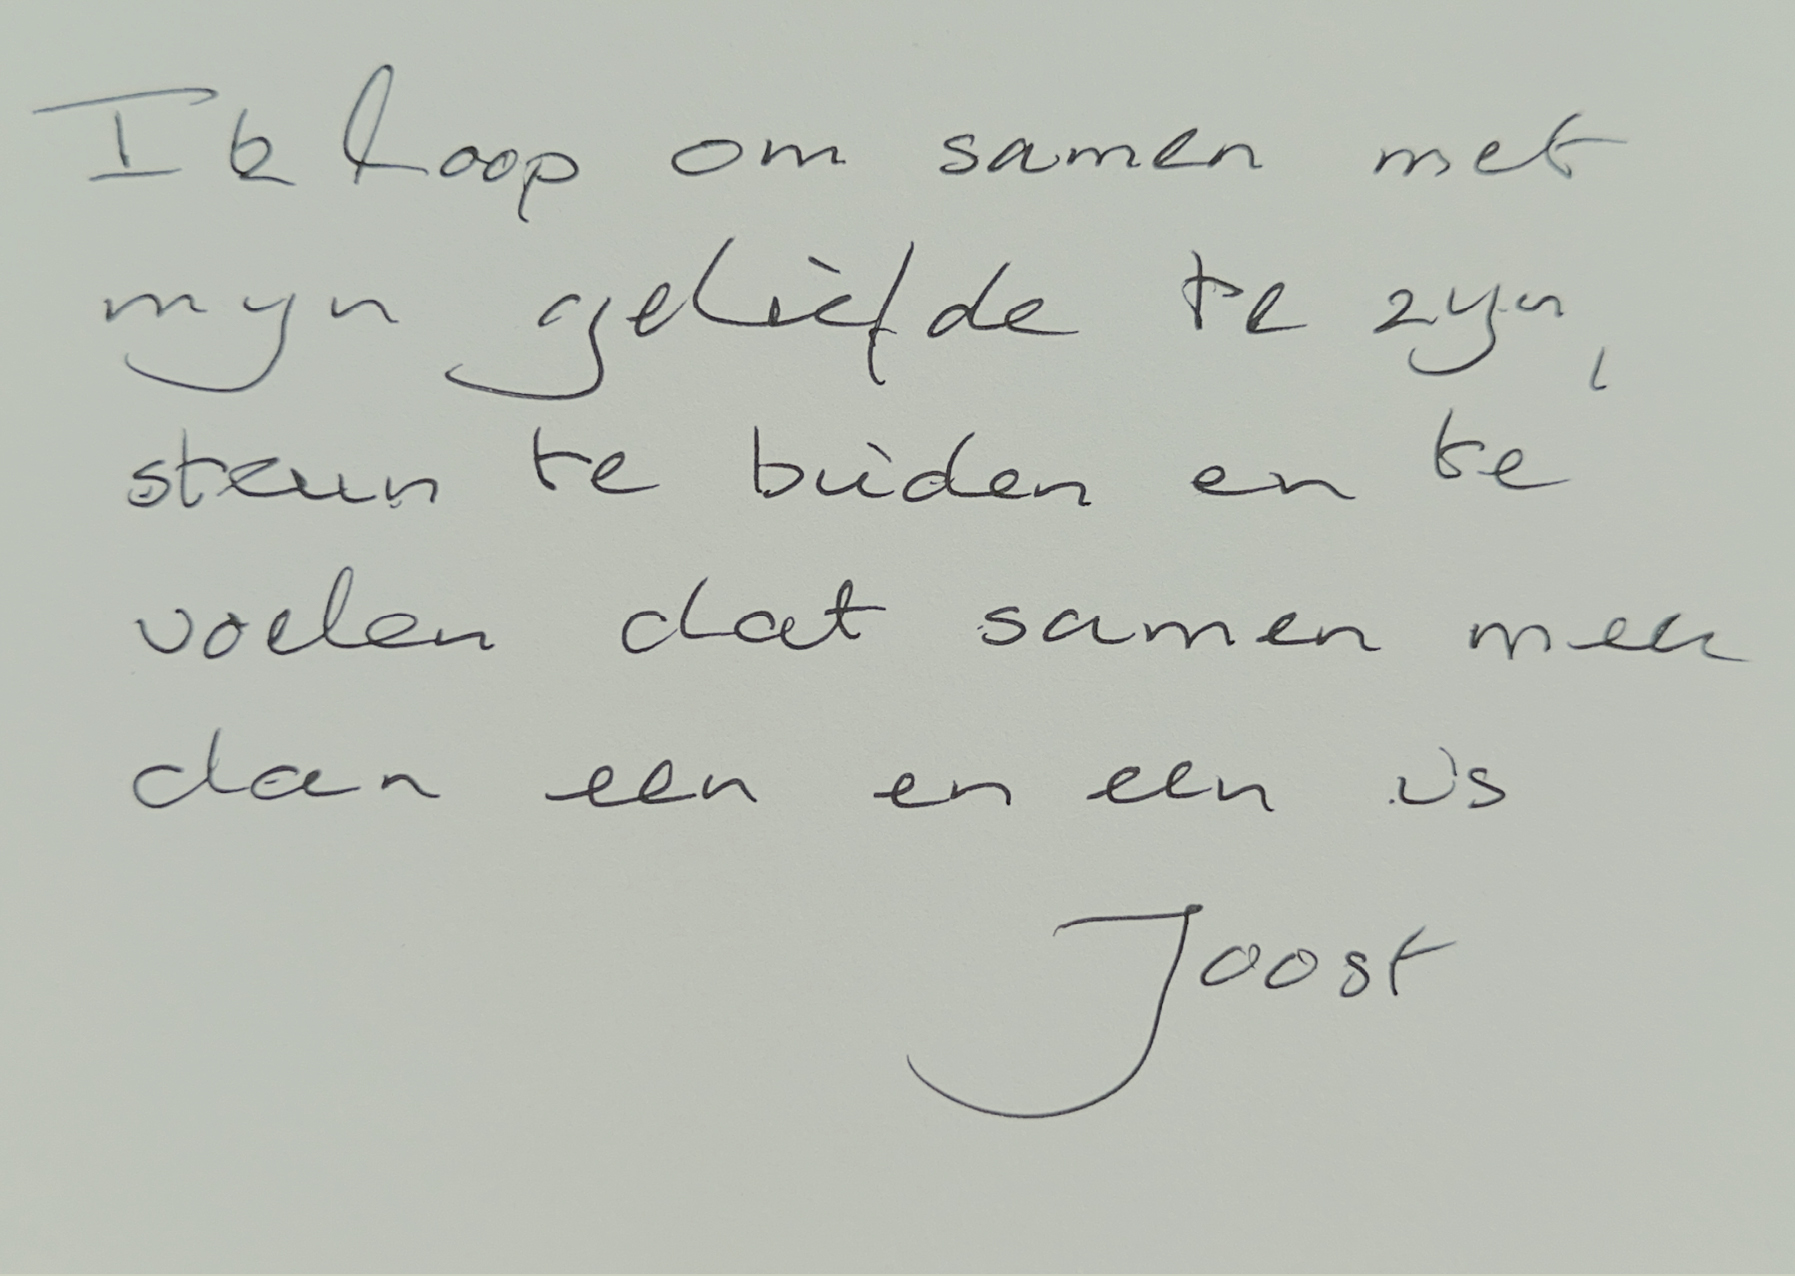 Ik hoop om samen met
mijn geliefde te zijn,
steun te bieden en te
voelen dat samen meer
dan een en een is
Joost